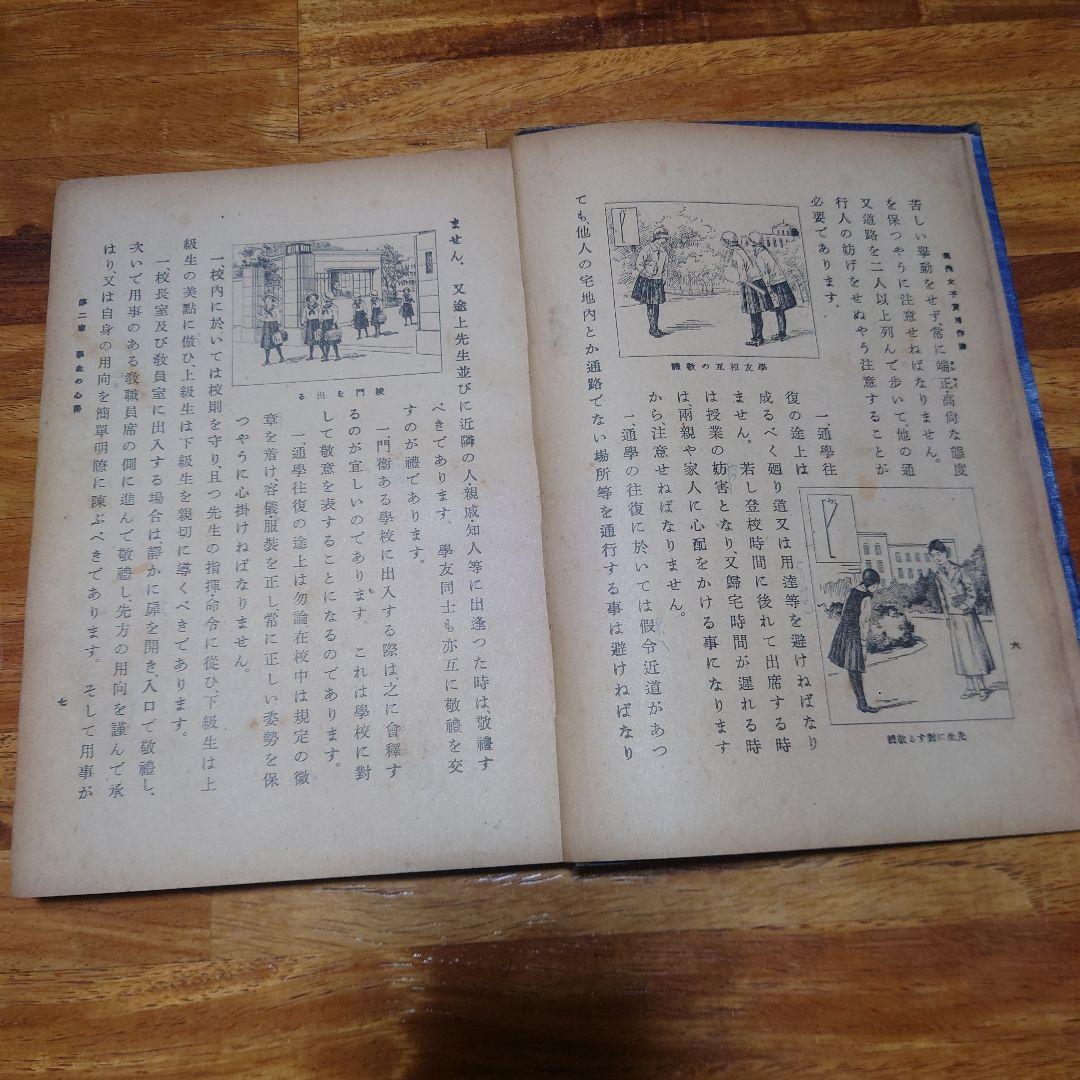 現代女子實用作法
苦しい擧動をせず、常に端正・高尙な態度
を保つやうに注意せねばなりません。
又道路を二人以上列んで歩いて、他の通
行人の妨げをせぬやう注意することが
必要であります。
先生に對する敬禮
學友相互の敬禮
一、通學往
復の途上は
成るべく廻り道又は用達等を避けねばなり
ません。若し登校時間に後れて出席する時
は授業の妨害となり、又歸宅時間が遲れる時
は、兩親や家人に心配をかける事になります
から、注意せねばなりません。
一、通學の往復に於いては假令近道があつ
ても、他人の宅地內とか通路でない場所等を通行する事は避けねばなり
六
ません。又途上先生並びに近隣の人・親戚・知人等に出逢つた時は、敬禮す
べきであります。學友同士も亦互に敬禮を交
すのが禮であります。
一、門衞ある學校に出入する際は、之に會釋す
るのが宜しいのであります。これは學校に對
して敬意を表することになるのであります。
一、通學往復の途上は勿論在校中は規定の徽
章を着け、容儀・服裝を正し、常に正しい姿勢を保
つやうに心掛けねばなりません。
校門を出る
一、校內に於いては校則を守り、且つ先生の指揮・命令に從ひ、下級生は上
級生の美點に倣ひ、上級生は下級生を親切に導くべきであります。
一、校長室及び敎員室に出入する場合は、靜かに扉を開き、入口で敬禮し、
次いで用事のある敎職員席の側に進んで敬禮し、先方の用向を謹んで承
はり、又は自身の用向を簡單明瞭に陳ぶべきであります。そして用事が
第二章 學生の心得
七